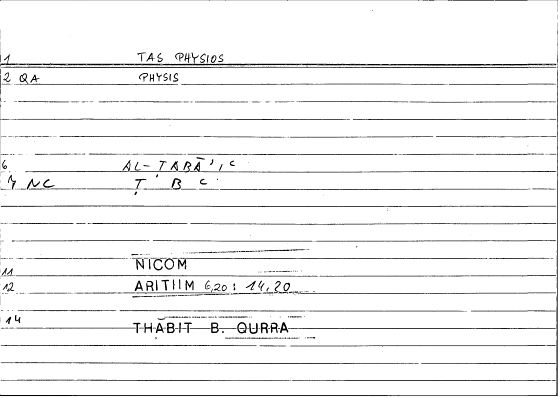 1 TAS PHYSIOS
2 QA PHYSIS
6 AL-ṬABĀ'I‘
7 NC Ṭ B ‘
11 NICOM
12 ARITIIM 6,20: 14,20
14 THĀBIT B. QURRA